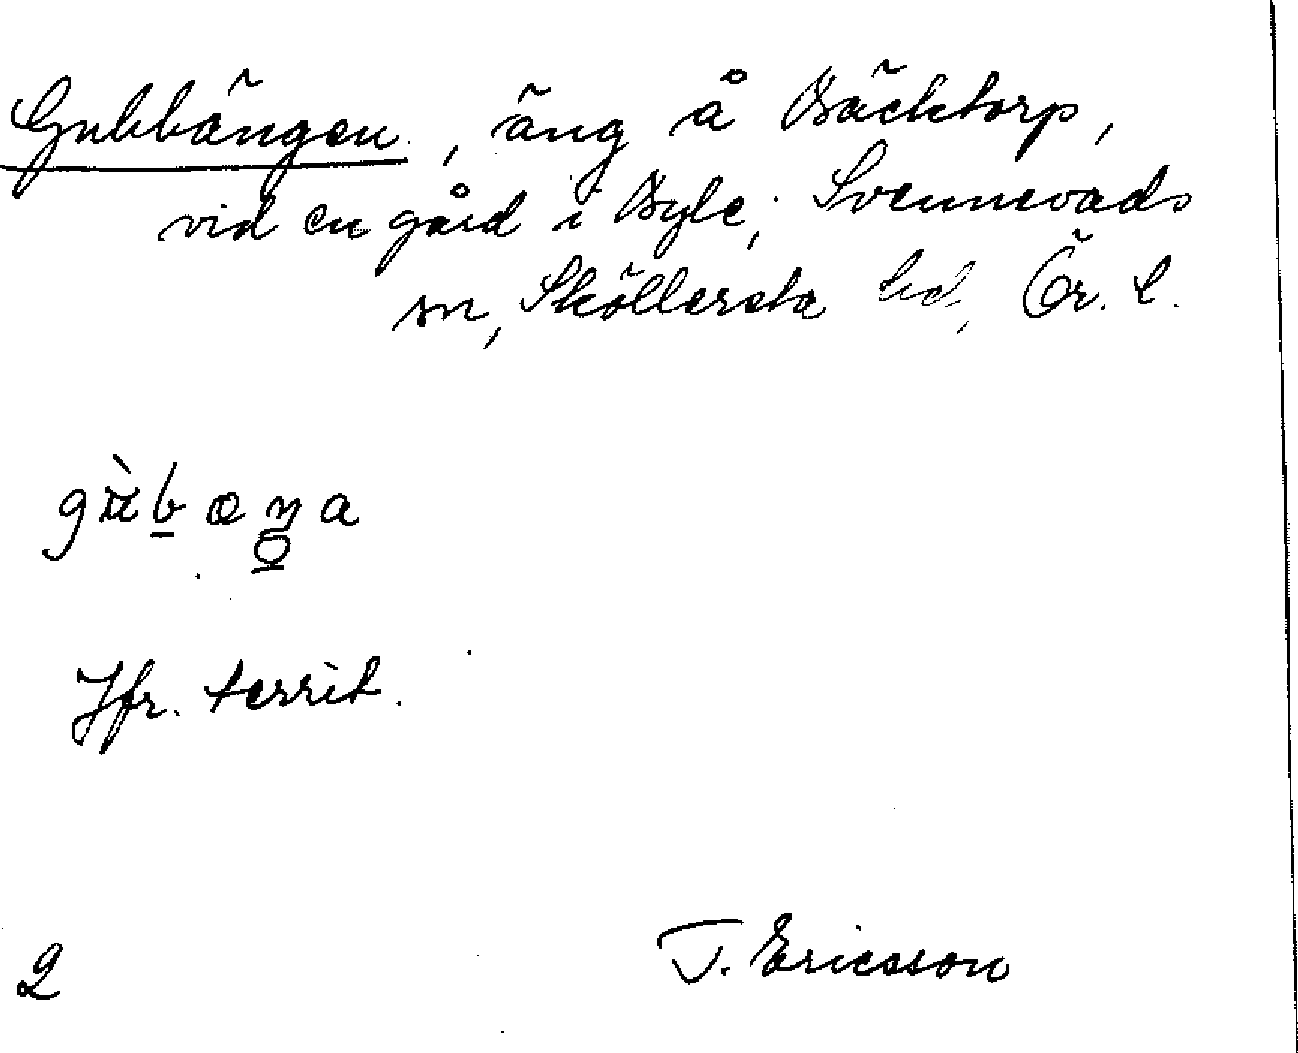 Gubbängen, äng å Bäcktorp,
vid en gård i Byle, Svennevads
sn, Sköllersta hd, Ör. L.
Jfr. territ.
2
T. Ericsson